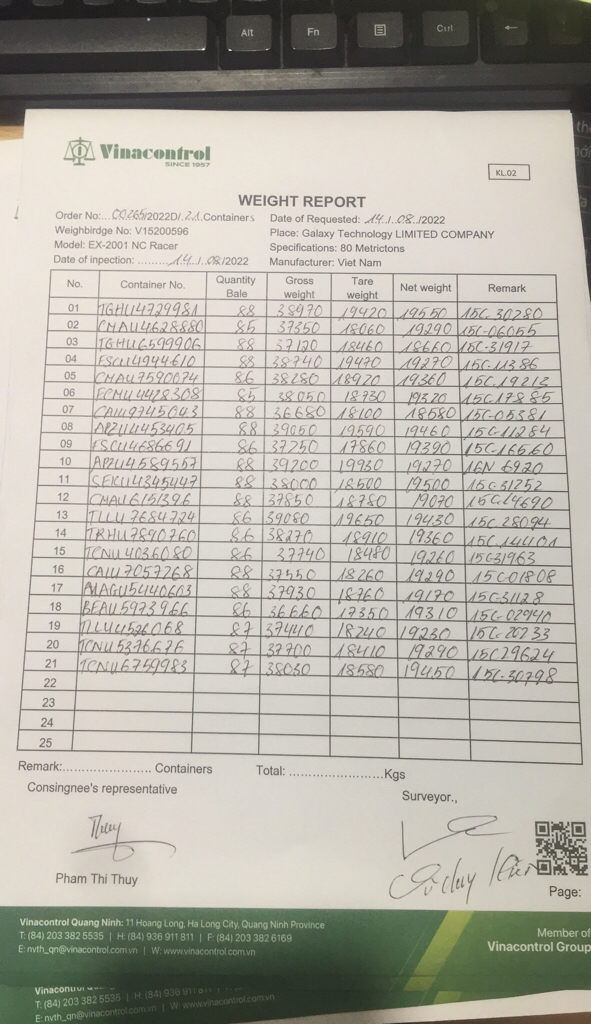 Alt
Fn
Ctrl
Vinacontrol
SINCE 1957
KL.02
WEIGHT REPORT
Order No:... 00265/2022D/.21.Containers Date of Requested: .14./.08./2022
Weighbirdge No: V15200596 Place: Galaxy Technology LIMITED COMPANY
Model: EX-2001 NC Racer Specifications: 80 Metrictons
Date of inpection: .........14./.08/2022 Manufacturer: Viet Nam
No. Container No. Quantity Bale Gross weight Tare weight Net weight Remark
01 TGHU4729981 88 38970 19420 19550 15C-30280
02 CMAU4628680 85 37350 18060 19290 15C-06055
03 TGHU6599906 88 37120 18460 18660 15C-31917
04 FSCU4944610 88 38740 19470 19270 15C-11386
05 CMAU7590024 86 38280 18920 19360 15C.19213
06 FCMU4428308 85 38050 18730 19320 15C17885
07 CAIU9745043 88 36680 18100 18580 15C-05381
08 APZU4453405 88 39050 19590 19460 15C-11284
09 FSCU4686691 86 37250 17860 19390 15C-16560
10 APZU4589557 88 39200 19930 19270 16N 6920
11 SEKU4345447 88 38000 18500 19500 15C-31252
12 CMAU6151396 88 37850 18780 19070 15C.14690
13 TLLU7684724 86 39080 19650 19430 15C.28094
14 TRHU7890760 86 38270 18910 19360 15C.14401
15 TCNU4036080 86 37740 18480 19260 15C31963
16 CAIU7057268 88 37550 18260 19290 15C01808
17 MAGU5440603 88 37930 18760 19170 15C-31128
18 BEAU5973966 86 36660 17350 19310 15C-02940
19 TLLU4526068 87 37440 18240 19230 15C-20233
20 TCNU5376676 87 37700 18410 19290 15C29624
21 TCNU6759983 87 38030 18580 19450 15C-30798
22
23
24
25
Remark:........................ Containers Total: ..........................Kgs
Consingnee's representative Surveyor.,
Thuy
Pham Thi Thuy
Page:
Vinacontrol Quang Ninh: 11 Hoang Long, Ha Long City, Quang Ninh Province
T: (84) 203 382 5535 | H: (84) 936 911 811 | F: (84) 203 382 6169
E: nvth_qn@vinacontrol.com.vn | W: www.vinacontrol.com.vn
Member of
Vinacontrol Group
T: (84) 203 382 5535 | H: (84) 936 911 811
E: nvth_qn@vinacontrol.com.vn | W: www.vinacontrol.com.vn